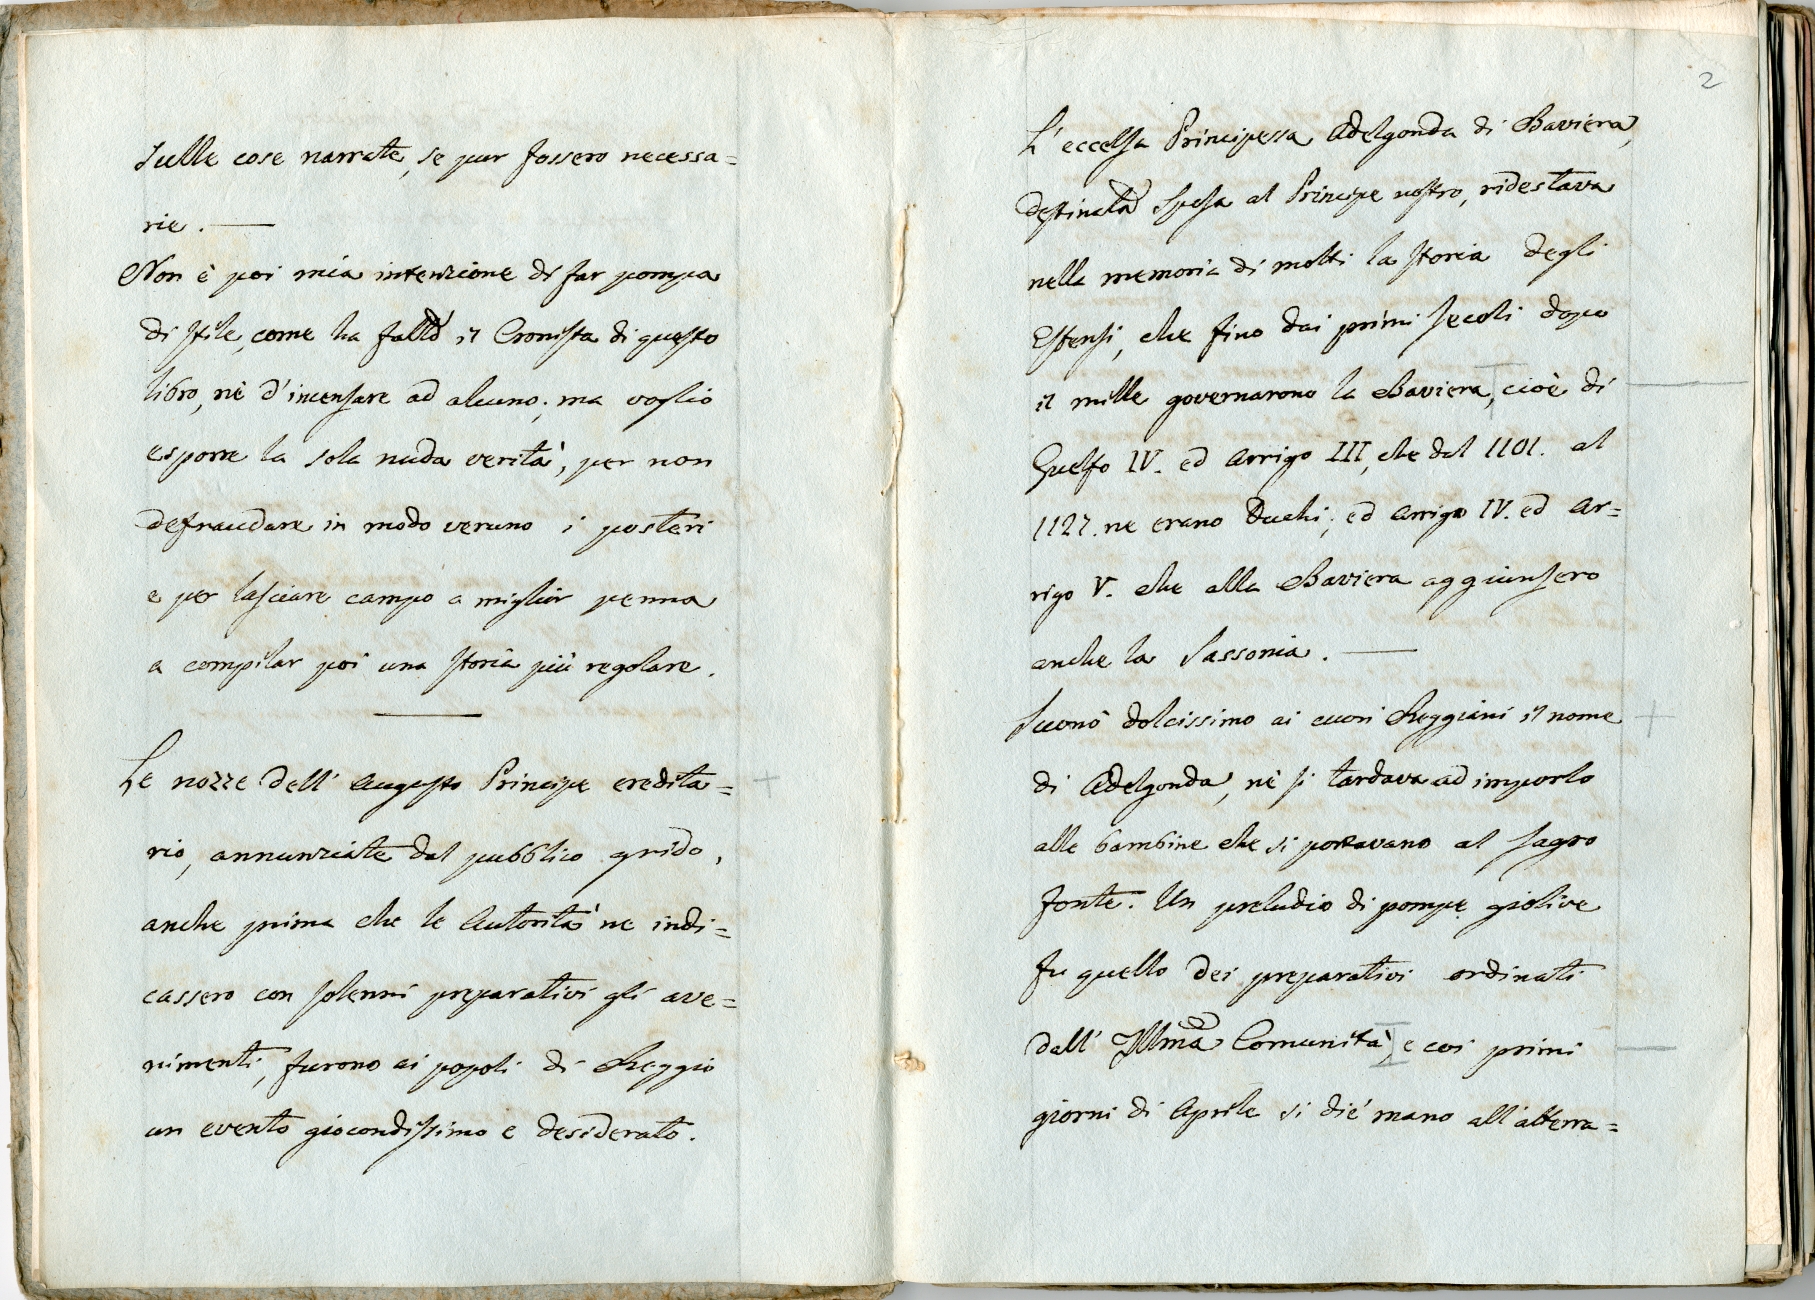 sulle cose narrate, se pur fossero necessa=
rie. —
Non è poi mia intenzione di far pompa
di stile, come ha fatto il Cronista di questo
libro, nè d'incensare ad alcuno; ma voglio
esporre la sola nuda verità, per non
defraudare in modo veruno i posteri
e per lasciare campo a miglior penna
a compilar poi una storia più regolare.
Le nozze dell'Augusto Principe eredita=
rio, annunziate dal pubblico grido,
anche prima che le Autorità ne indi=
cassero con solenni preparativi gli avve=
nimenti, furono ai popoli di Reggio
un evento giocondissimo e desiderato.
2
L'eccelsa Principessa Adelgonda di Baviera,
destinata Sposa al Principe nostro, ridestava
nella memoria di molti la storia degli
Estensi, che fino dai primi secoli dopo
il mille governarono la Baviera, cioè di
Guelfo IV. ed Arrigo III, che dal 1101. al
1127. ne erano Duchi; ed Arrigo IV. ed Ar=
rigo V. che alla Baviera aggiunsero
anche la Sassonia. —
Suonò dolcissimo ai cuori Reggiani il nome
di Adelgonda, nè si tardava ad imporlo
alle bambine che si portavano al sagro
fonte. Un preludio di pompe giolive
fu quello dei preparativi ordinati
dall'Illma Comunità, e coi primi
giorni di Aprile si diè mano all'atterra=